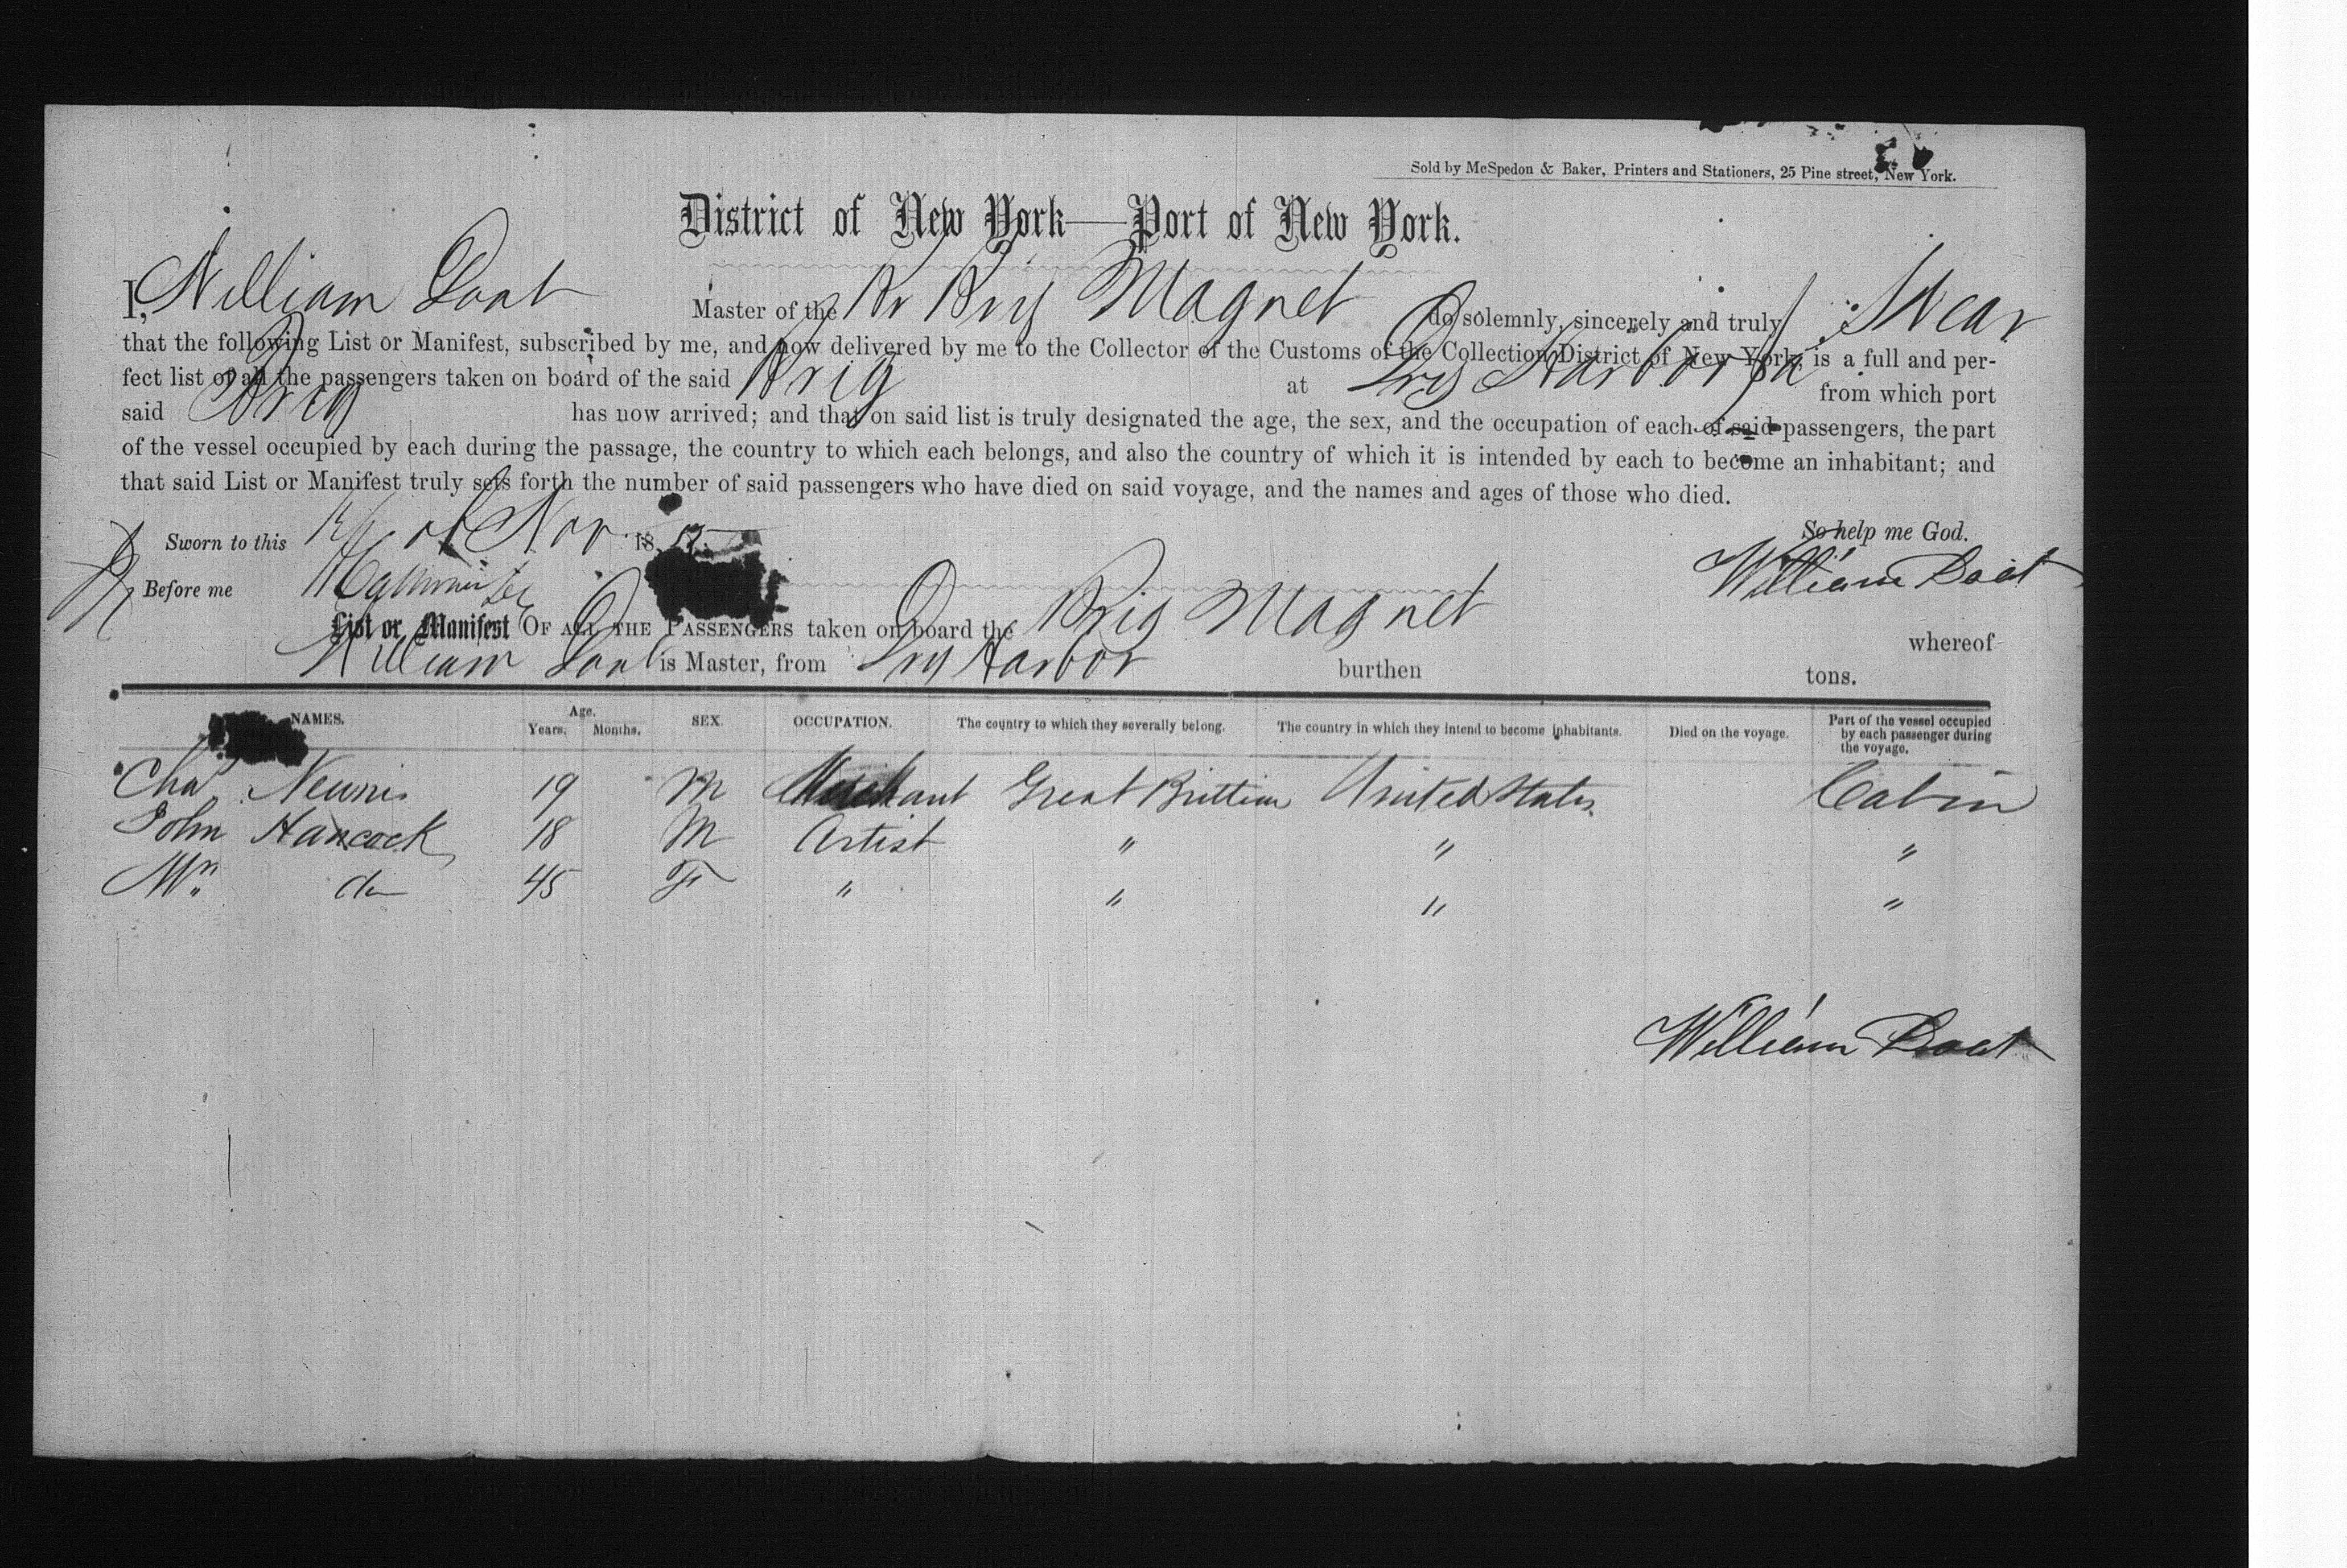 Sold by McSpedon & Baker, Printers and Stationers, 25 Pine street, New York.
District of New York—Port of New York.
I, William Doat Master of the Br Brig Magnet do solemnly, sincerely and truly Swear
that the following List or Manifest, subscribed by me, and now delivered by me to the Collector of the Customs of the Collection District of New York, is a full and per-
fect list of all the passengers taken on board of the said Brig at Dry Harbor Ja from which port
said Brig has now arrived; and that on said list is truly designated the age, the sex, and the occupation of each of said passengers, the part
of the vessel occupied by each during the passage, the country to which each belongs, and also the country of which it is intended by each to become an inhabitant; and
that said List or Manifest truly sets forth the number of said passengers who have died on said voyage, and the names and ages of those who died.
Sworn to this of Nov 18 So help me God.
Before me William Doat
List or Manifest OF ALL THE PASSENGERS taken on board the Brig Magnet whereof
William Doat is Master, from Dry Harbor burthen tons.
NAMES. Age. Years. Months. SEX. OCCUPATION. The country to which they severally belong. The country in which they intend to become inhabitants. Died on the voyage. Part of the vessel occupied by each passenger during the voyage.
Chas 19 M Merchant Great Brittian United States Cabin
John Hancock 18 M Artist " " "
Mrs do 45 F " " " "
William Doat